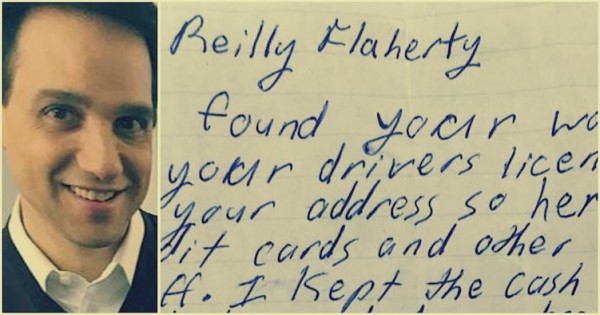 Reilly Flaherty
found your wa
your drivers licen
your address so her
dit cards and other
ff. I Kept the cash